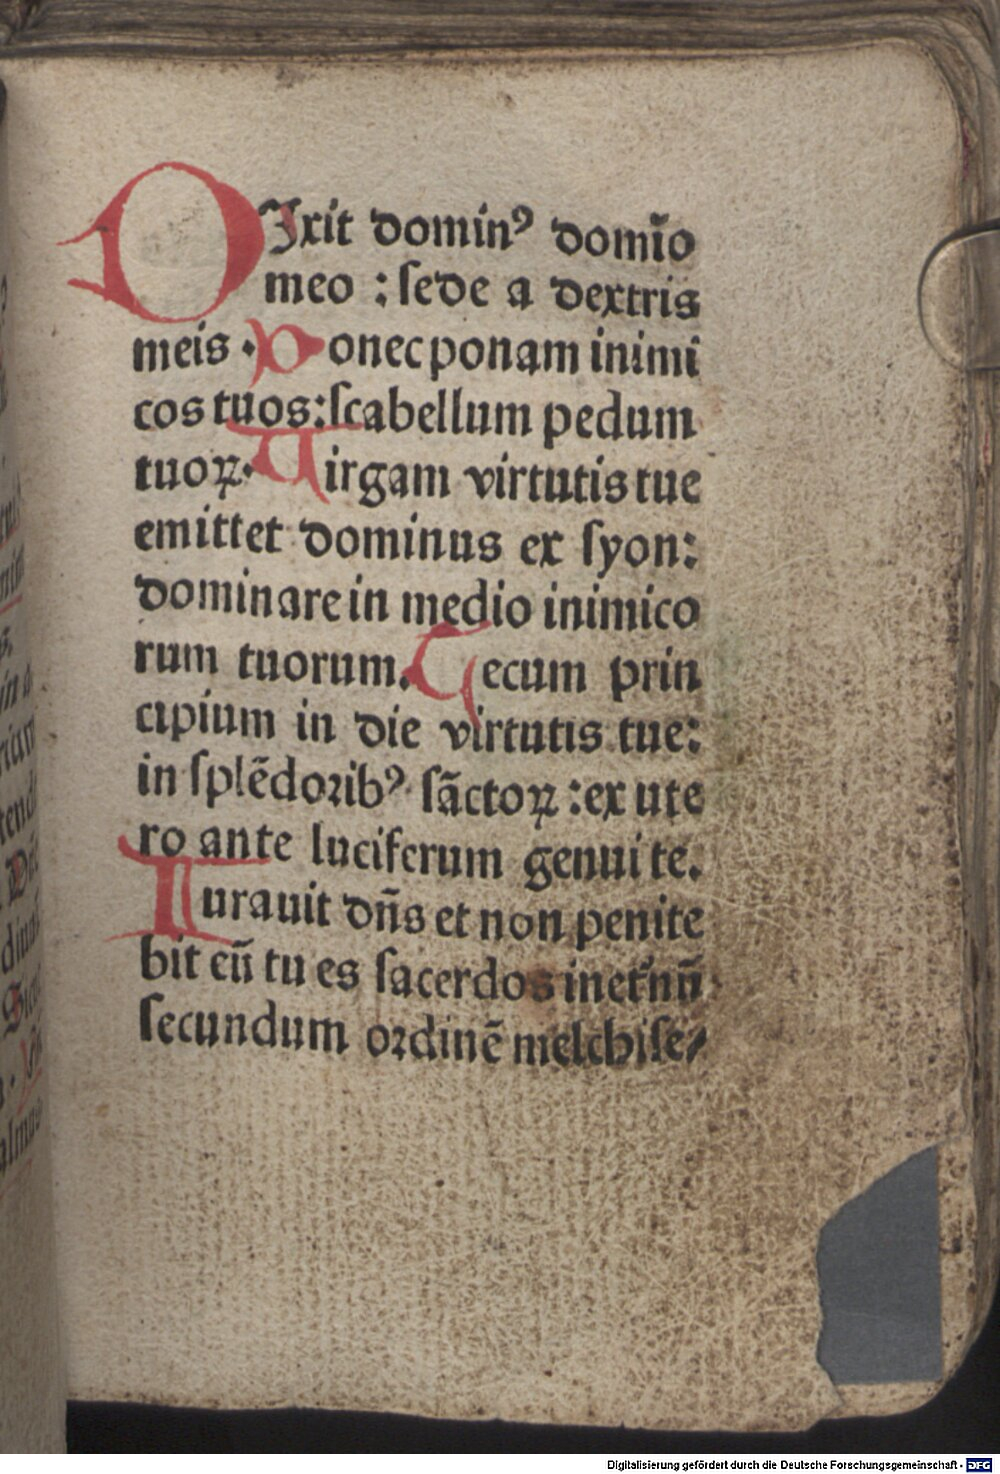 DIxit dominꝰ domīo
meo : sede a dextris
meis · Donec ponam inimi
cos tuos: scabellum pedum
tuoꝝ· Uirgam virtutis tue
emittet dominus ex syon:
dominare in medio inimico
rum tuorum. Tecum prin
cipium in die virtutis tue:
in splēdoribꝰ sāctoꝝ : ex ute
ro ante luciferum genui te.
Iurauit dn̄s et non penite
bit eū tu es sacerdos inet'nū
secundum ordinē melchise/
Digitalisierung gefördert durch die Deutsche Forschungsgemeinschaft - DFG